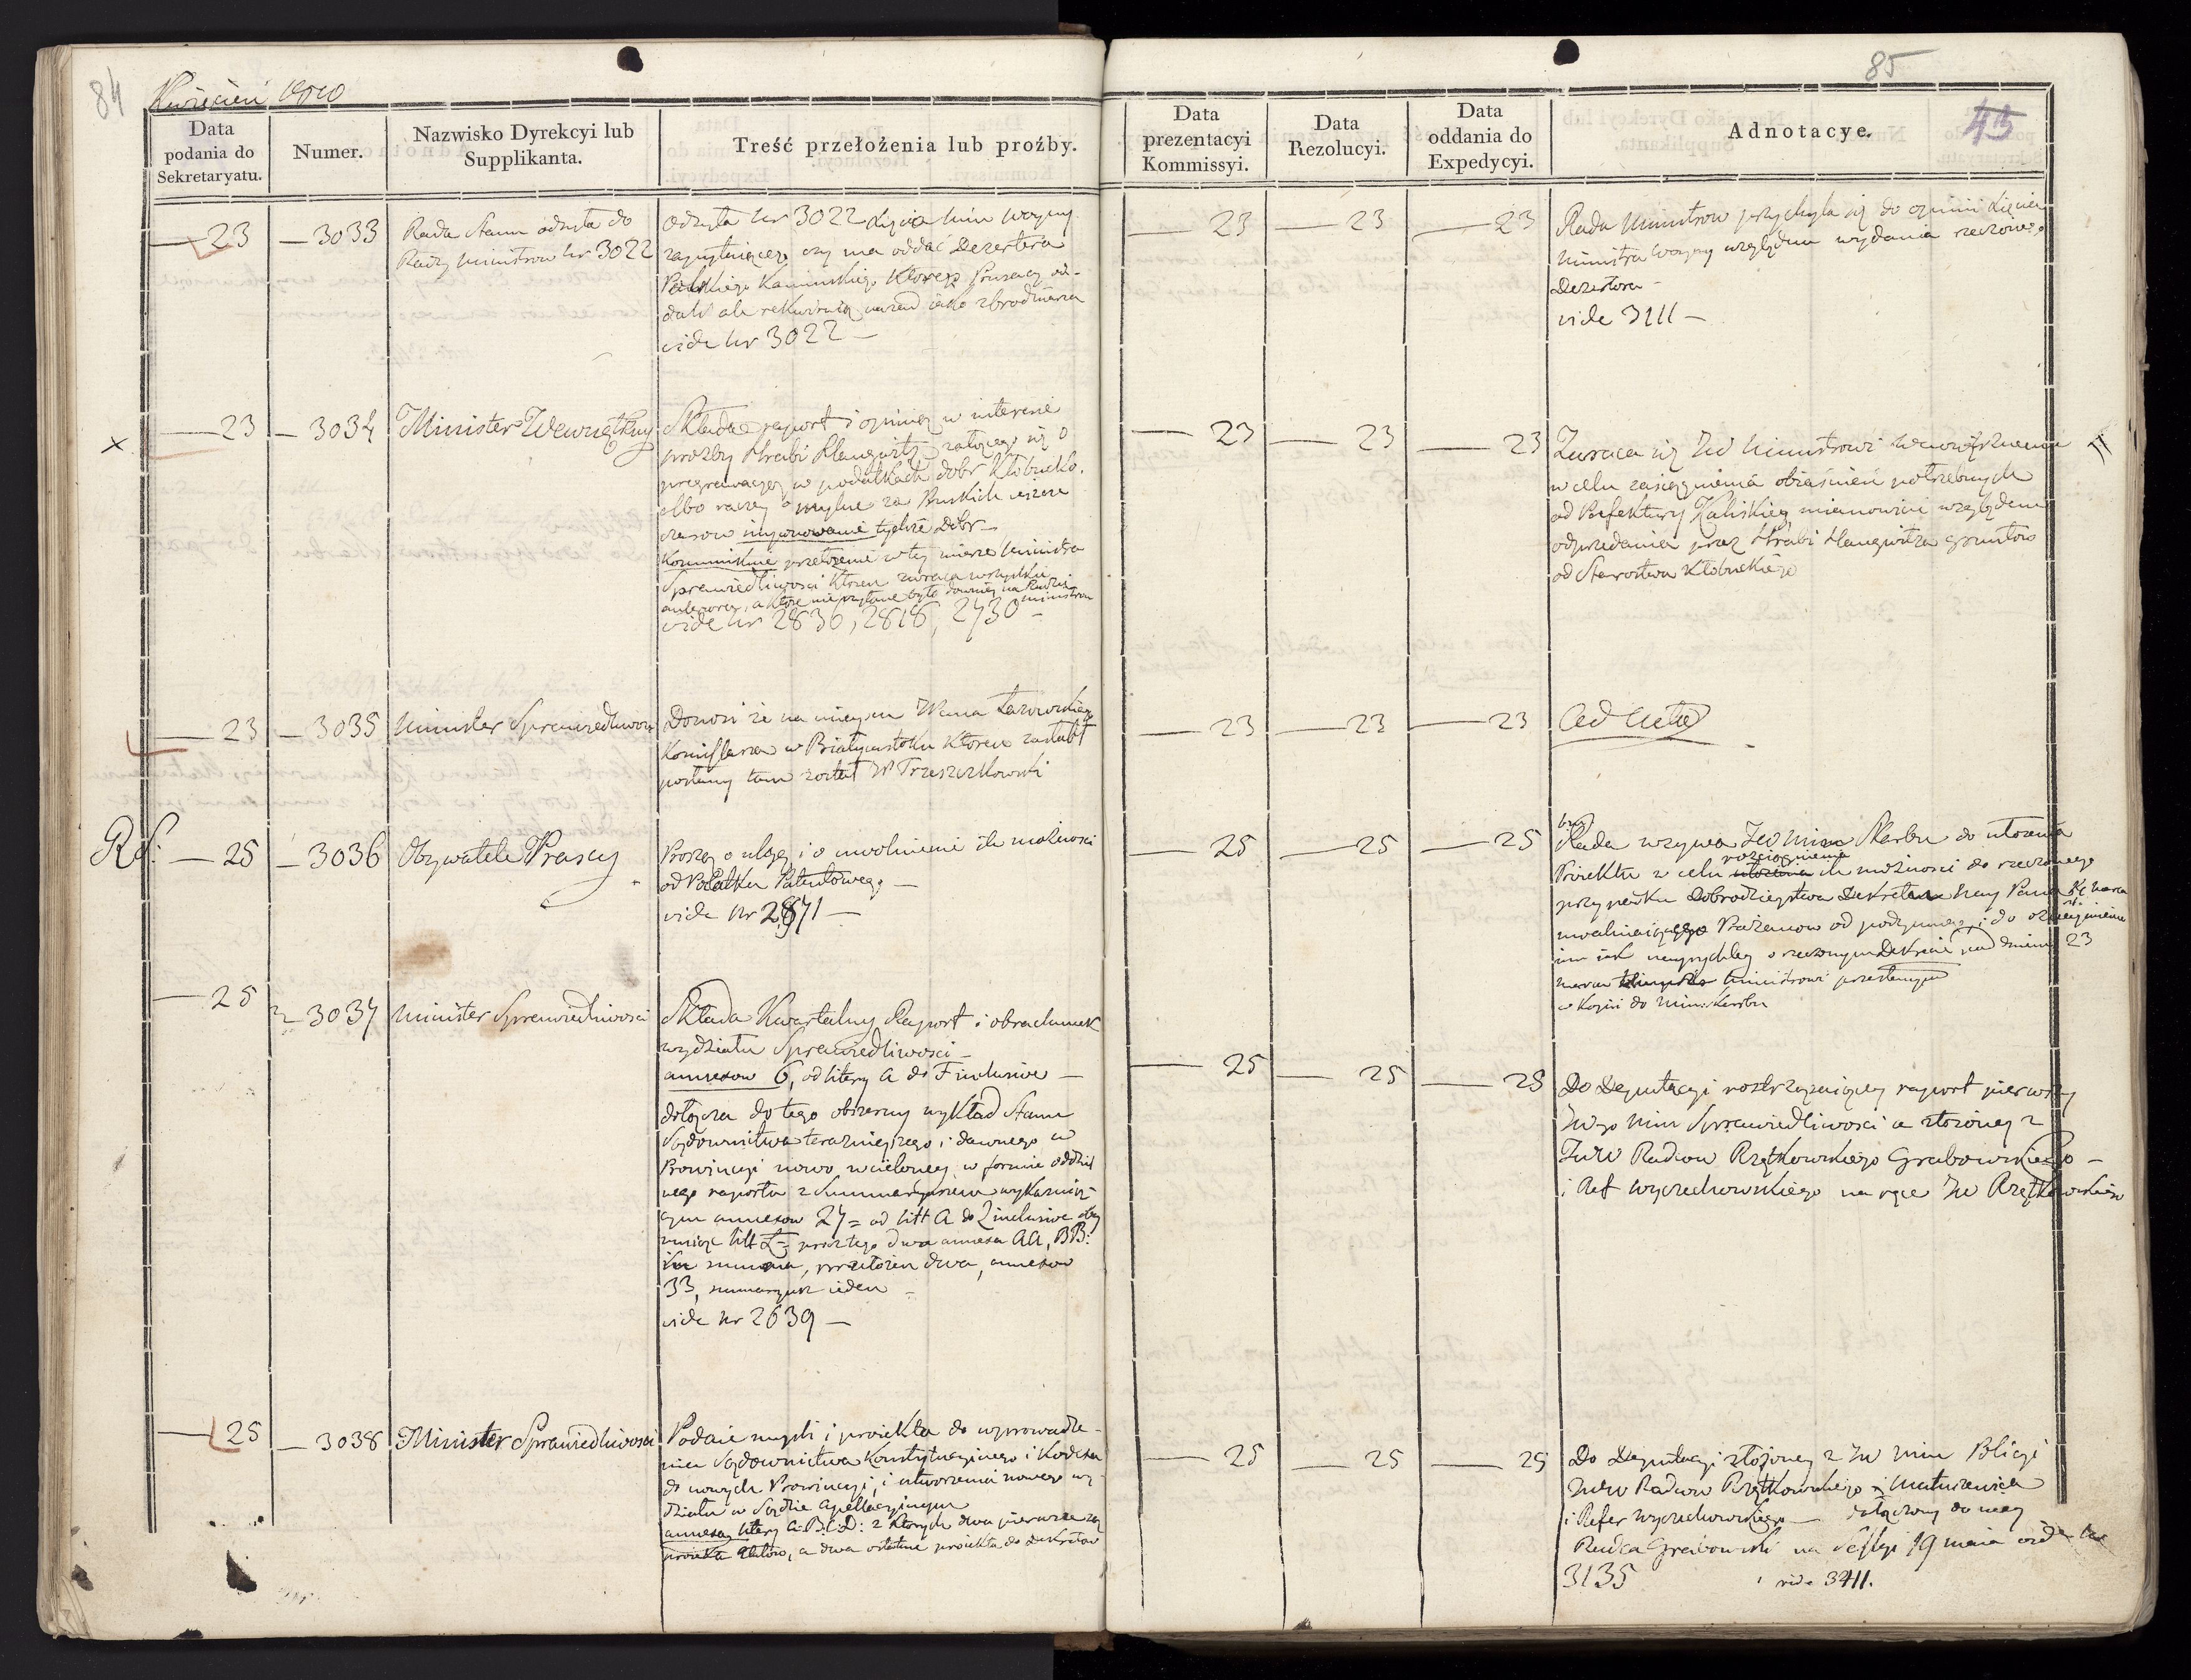 84
Kwiecień 1810
Data podania do Sekretaryatu.
Numer.
Nazwisko Dyrekcyi lub Supplikanta.
Treść przełożenia lub proźby.
23
3033
Rada Stanu odsyła do
Rady Ministrow Nr 3022
odsyła Nr 3022 Xięcia Min Woyny
zapytuiącego czy ma oddać Dezertera
Pruskiego Kaminskiego Ktorego Prusacy od-
dali ale rekwiruią nazad iako zbrodniarza
vide Nr 3022 —
×
23
3034
Minister Wewnętrzny
Składa raport i opinią w interesie
proźby Hrabi Haugwitz żalącego się o
pregrawacyą w podatkach dobr Kłobucko.
albo raczey o mylne za Pruskich ieszcze
czasow tychże Dobr —
przełożenie w tey mierze Ministra
Sprawiedliwosci Ktoren zwraca wszystkie
vide Nr 2836, 2818, 2730 —
23
3035
Minister Sprawiedliwosci
Donosi że na mieysce
Kommissarza w Białymstoku Ktoren zasłabł
posłany tam został W Trzeszczkowski
Rf.
25
3036
Obywatele Prascy
Proszą o ulgę i o uwolnienie ile możności
od Podatku Patentowego —
vide Nr 2871 —
25
3037
Minister Sprawiedliwosci
Składa Kwartalny Raport i obrachunek
wydziału Sprawiedliwosci —
annexow 6, od litery A do F inclusive —
dołącza do tego obszerny wykład Stanu
Sądownictwa teraznieyszego i dawnego w
Prowincyi nowo wcieloney w formie oddziel
nego raportu z Summaryuszem wykazuią-
cym annexow 27 = od litt A do Z inclusive
prócz tego dwa annexa AA, BB:
summa, przełożen dwa, annexow
33, sumaryusz ieden —
vide Nr 2639 —
25
3038
Minister Sprawiedliwosci
Podaie mysli i proiekta do wprowadze-
nia Sądownictwa Konstytucyinego i Kodexu
do nowych Prowincyi, i utworzenia nowego wy-
działu w Sądzie Apellacyinym
annexa litery A.B.C.D: z Ktorych dwa pierwsze są
proiekta, a dwa ostatnie proiekta do Dekretow
85
45
Data prezentacyi Kommissyi.
Data Rezolucyi.
Data oddania do Expedycyi.
Adnotacye.
23
23
23
Rada Ministrow przychyla się do opinii Xięcia
Ministra Woyny względem wydania rzeczonego
Dezertera —
vide 3111 —
23
23
23
Zwraca się JW Ministrowi Wewnętrznemu
w celu zasiągnienia obiaśnień potrzebnych
od Prefektury Kaliskiey mianowicie względem
odprzedania przez Hrabi Haugwitza gruntow
od Starostwa Kłobuckiego
23
23
23
Ad Acta
25
25
25
Rada wzywa JW Min Skarbu do ułożenia
Proiektu w celu rozciągnienia ile możności do rzeczonego
przypadku Dobrodzieystwa Dekretem Nay Pana
uwalniaiącego od podymnego i do
im iak nayprychley o rzeczonym Dekrecie pod dniem 23
Ministrowi przesłanym
w Kopii do Min: Skarbu
25
25
25
Do Deputacyi rostrząsaiącey raport pierwszy
JWgo Min Sprawiedliwosci a złożoney z
JWW Radcow Rzętkowskiego Grabowskiego —
i Ref Wyczechowskiego na ręce JW Rzętkowskiego
25
25
25
Do Deputacyi złożoney z JW Min Policyi
JWW Radcow Rzętkowskiego i Matuszewica
i Refer Wyczechowskiego — dołączony do niey
Radca Grabowski na Sessyi 19 maia vide Nr
3135
vide 3411.